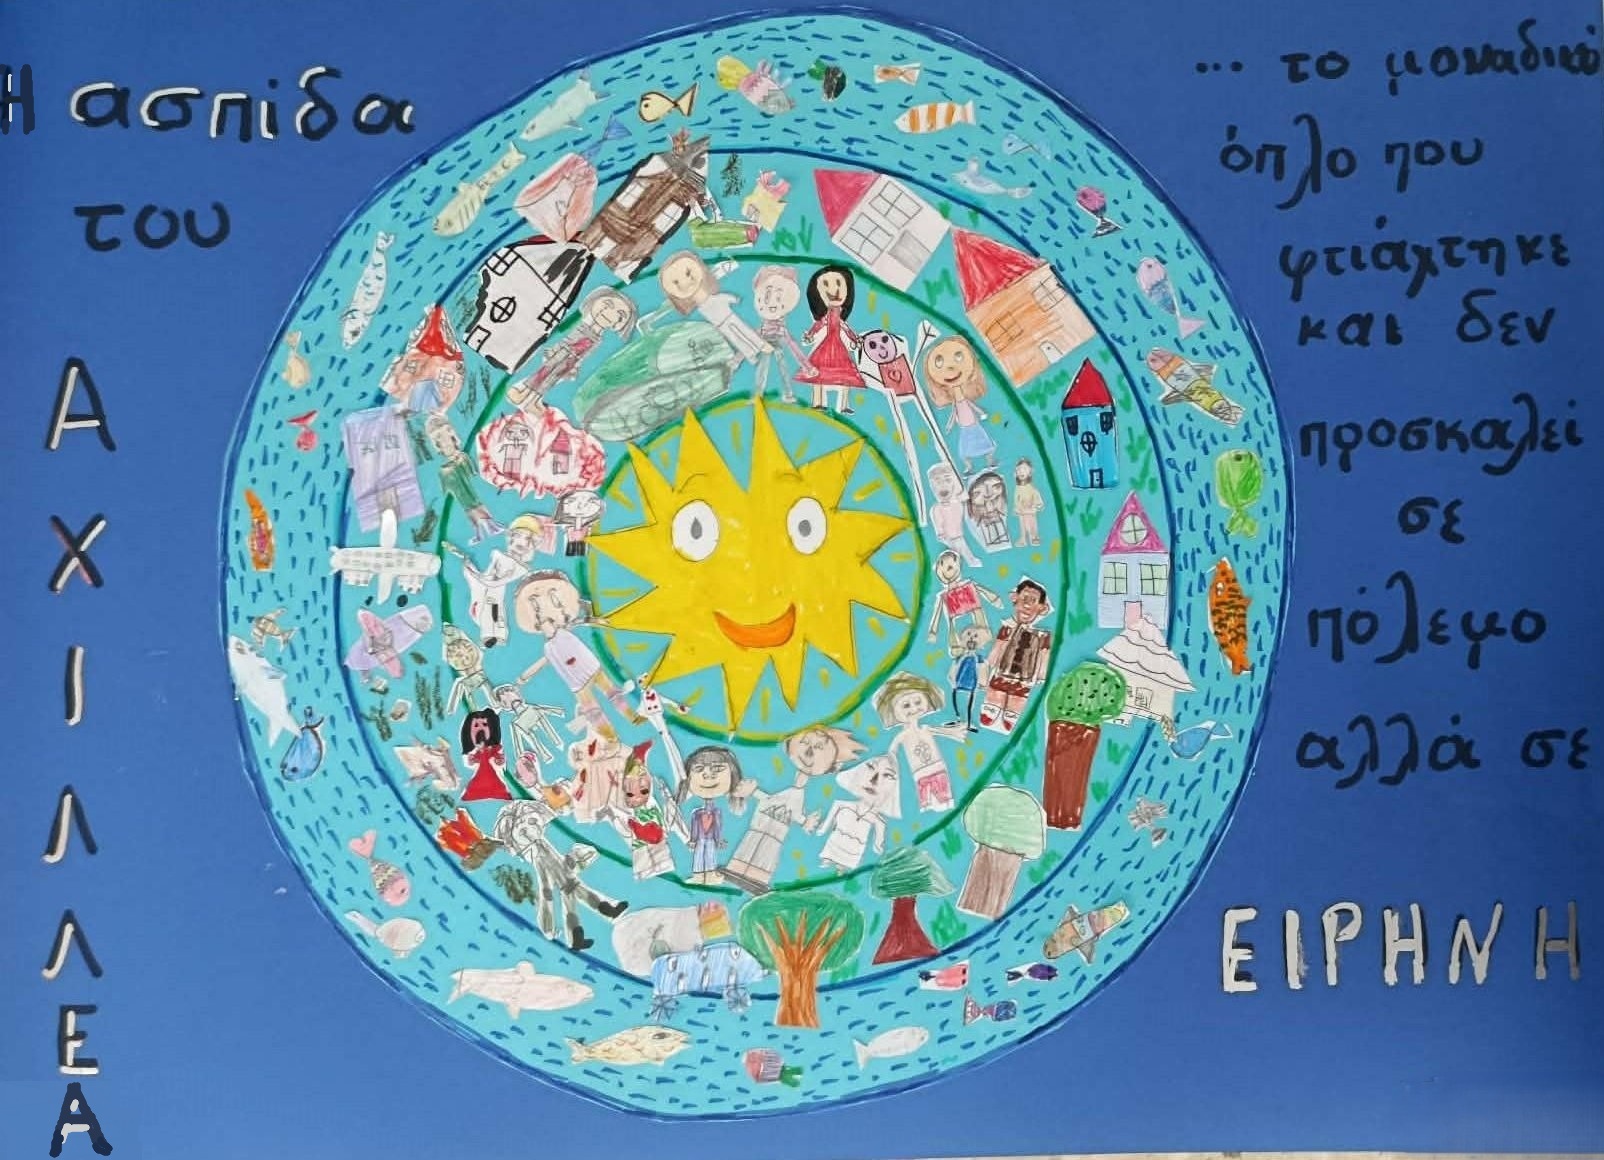 Η ασπίδα
του
Α
Χ
Ι
Λ
Λ
Ε
Α
... το μοναδικό
όπλο που
φτιάχτηκε
και δεν
προσκαλεί
σε
πόλεμο
αλλά σε
ΕΙΡΗΝΗ